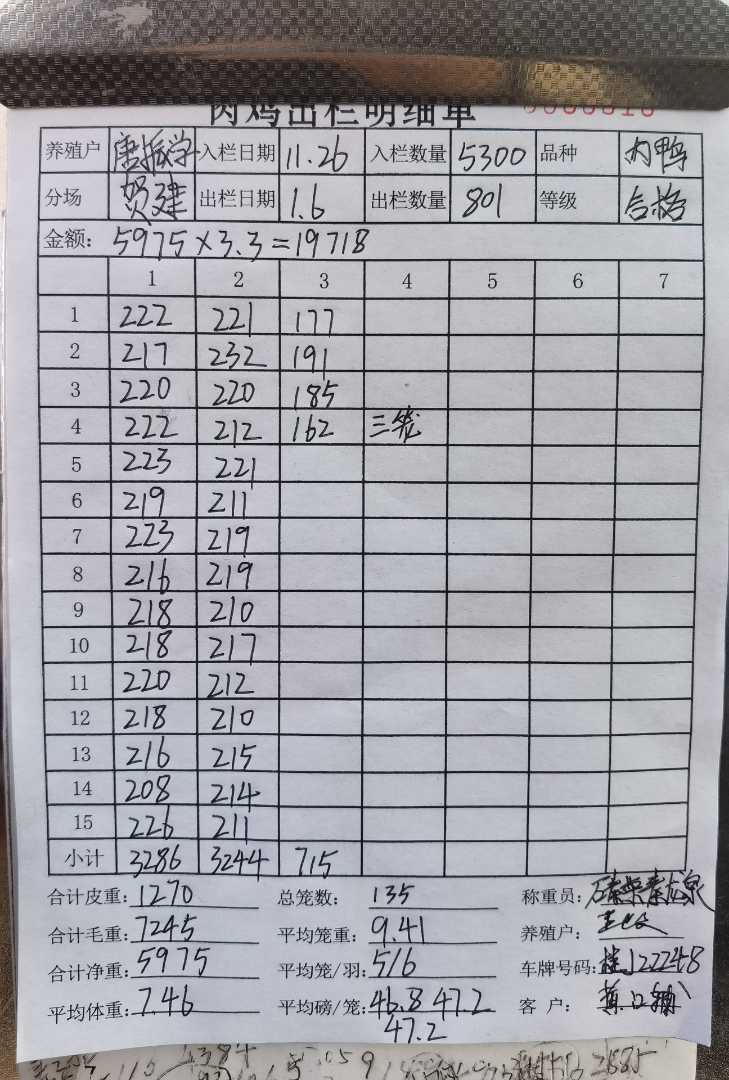 肉鸡出栏明细单
养殖户 唐振学 入栏日期 11.26 入栏数量 5300 品种 肉鸭
分场 贺建 出栏日期 1.6 出栏数量 801 等级 合格
金额: 5975×3.3=19718
1 2 3 4 5 6 7
1 222 221 177
2 217 232 191
3 220 220 185
4 222 212 162 三笼
5 223 221
6 219 211
7 223 219
8 216 219
9 218 210
10 218 217
11 220 212
12 218 210
13 216 215
14 208 214
15 226 211
小计 3286 3244 715
合计皮重: 1270 总笼数: 135 称重员:
合计毛重: 7245 平均笼重: 9.41 养殖户:
合计净重: 5975 平均笼/羽: 5/6 车牌号码: 桂J22248
平均体重: 7.46 平均磅/笼: 46.8 47.2 客户:
47.2